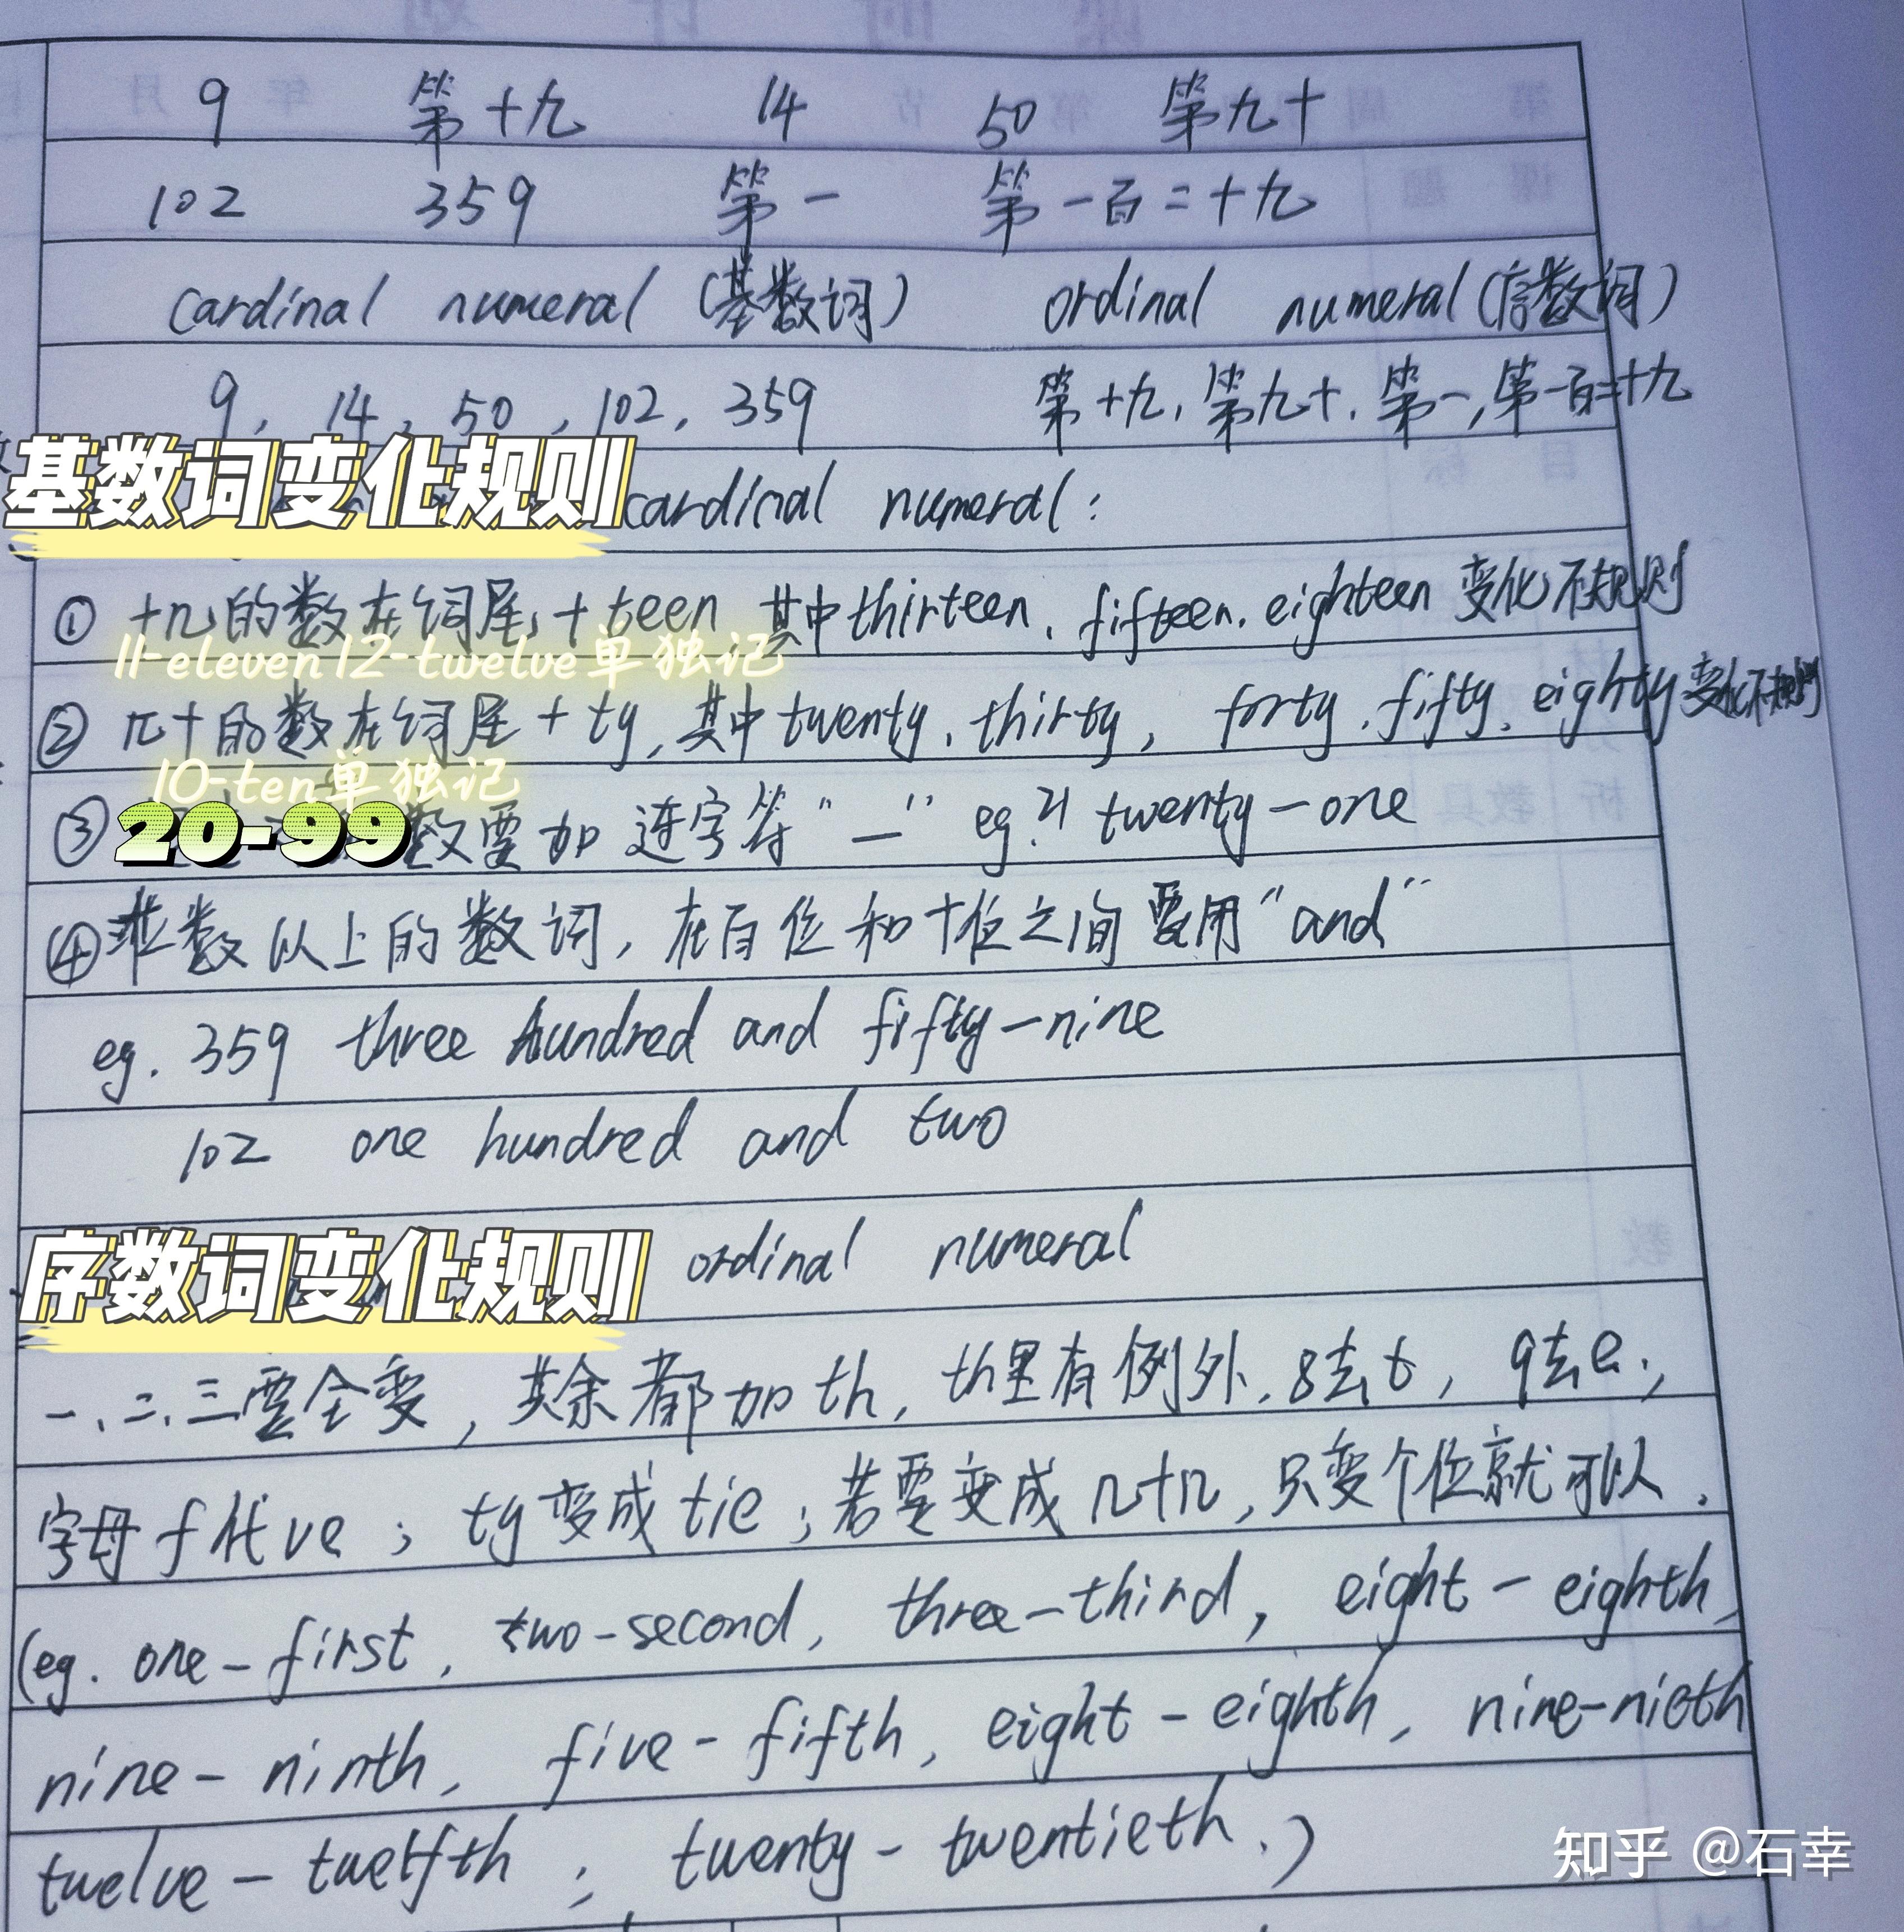 9 第十九 14 50 第九十
102 359 第一 第一百二十九
cardinal numeral (基数词) ordinal numeral (序数词)
9, 14, 50, 102, 359 第十九, 第九十, 第一, 第一百二十九
基数词变化规则 cardinal numeral:
① 十几的数在词尾+teen 其中thirteen, fifteen, eighteen 变化不规则
11-eleven 12-twelve单独记
② 几十的数在词尾+ty, 其中twenty, thirty, forty, fifty, eighty变化不规则
10-ten单独记
③ 20-99 数要加连字符"—" eg.21 twenty-one
④ 数以上的数词,在百位和十位之间要用"and"
eg. 359 three hundred and fifty-nine
102 one hundred and two
序数词变化规则 ordinal numeral
一、二、三要全变, 其余都加th, th里有例外, 8去t, 9去e;
字母f代ve; ty变成tie; 若要变成几十几, 只变个位就可以.
(eg. one-first, two-second, three-third, eight-eighth,
nine-ninth, five-fifth, eight-eighth, nine-nieth
twelve-twelfth; twenty-twentieth.)
知乎 @石幸